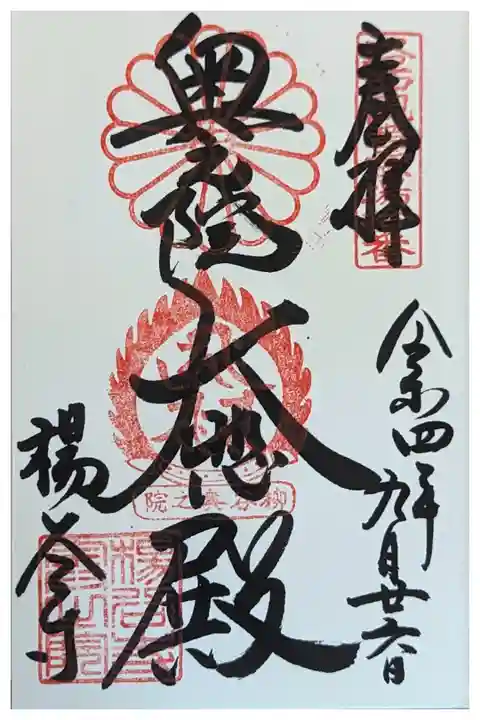 奉拝
奥之院
大悲殿
令和四年九月廿六日
楊谷寺
柳谷奥之院